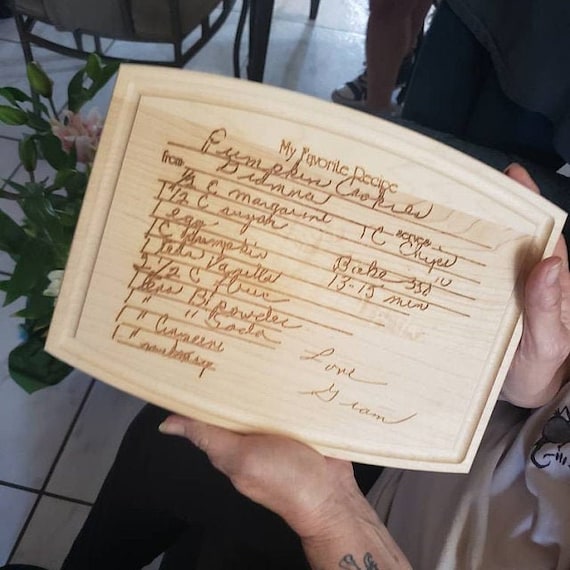 My Favorite Recipe
Pumpkin Cookies
from: Dianna serves:
1/2 C margarine 1 C Chips
1 1/2 C sugar
1 egg Bake 350
1 C Pumpkin 13-15 min
1 Vanilla
2 1/2 C flour
1 B. powder
1 " " Soda
1 "
1 " nutmeg
Love
Gram